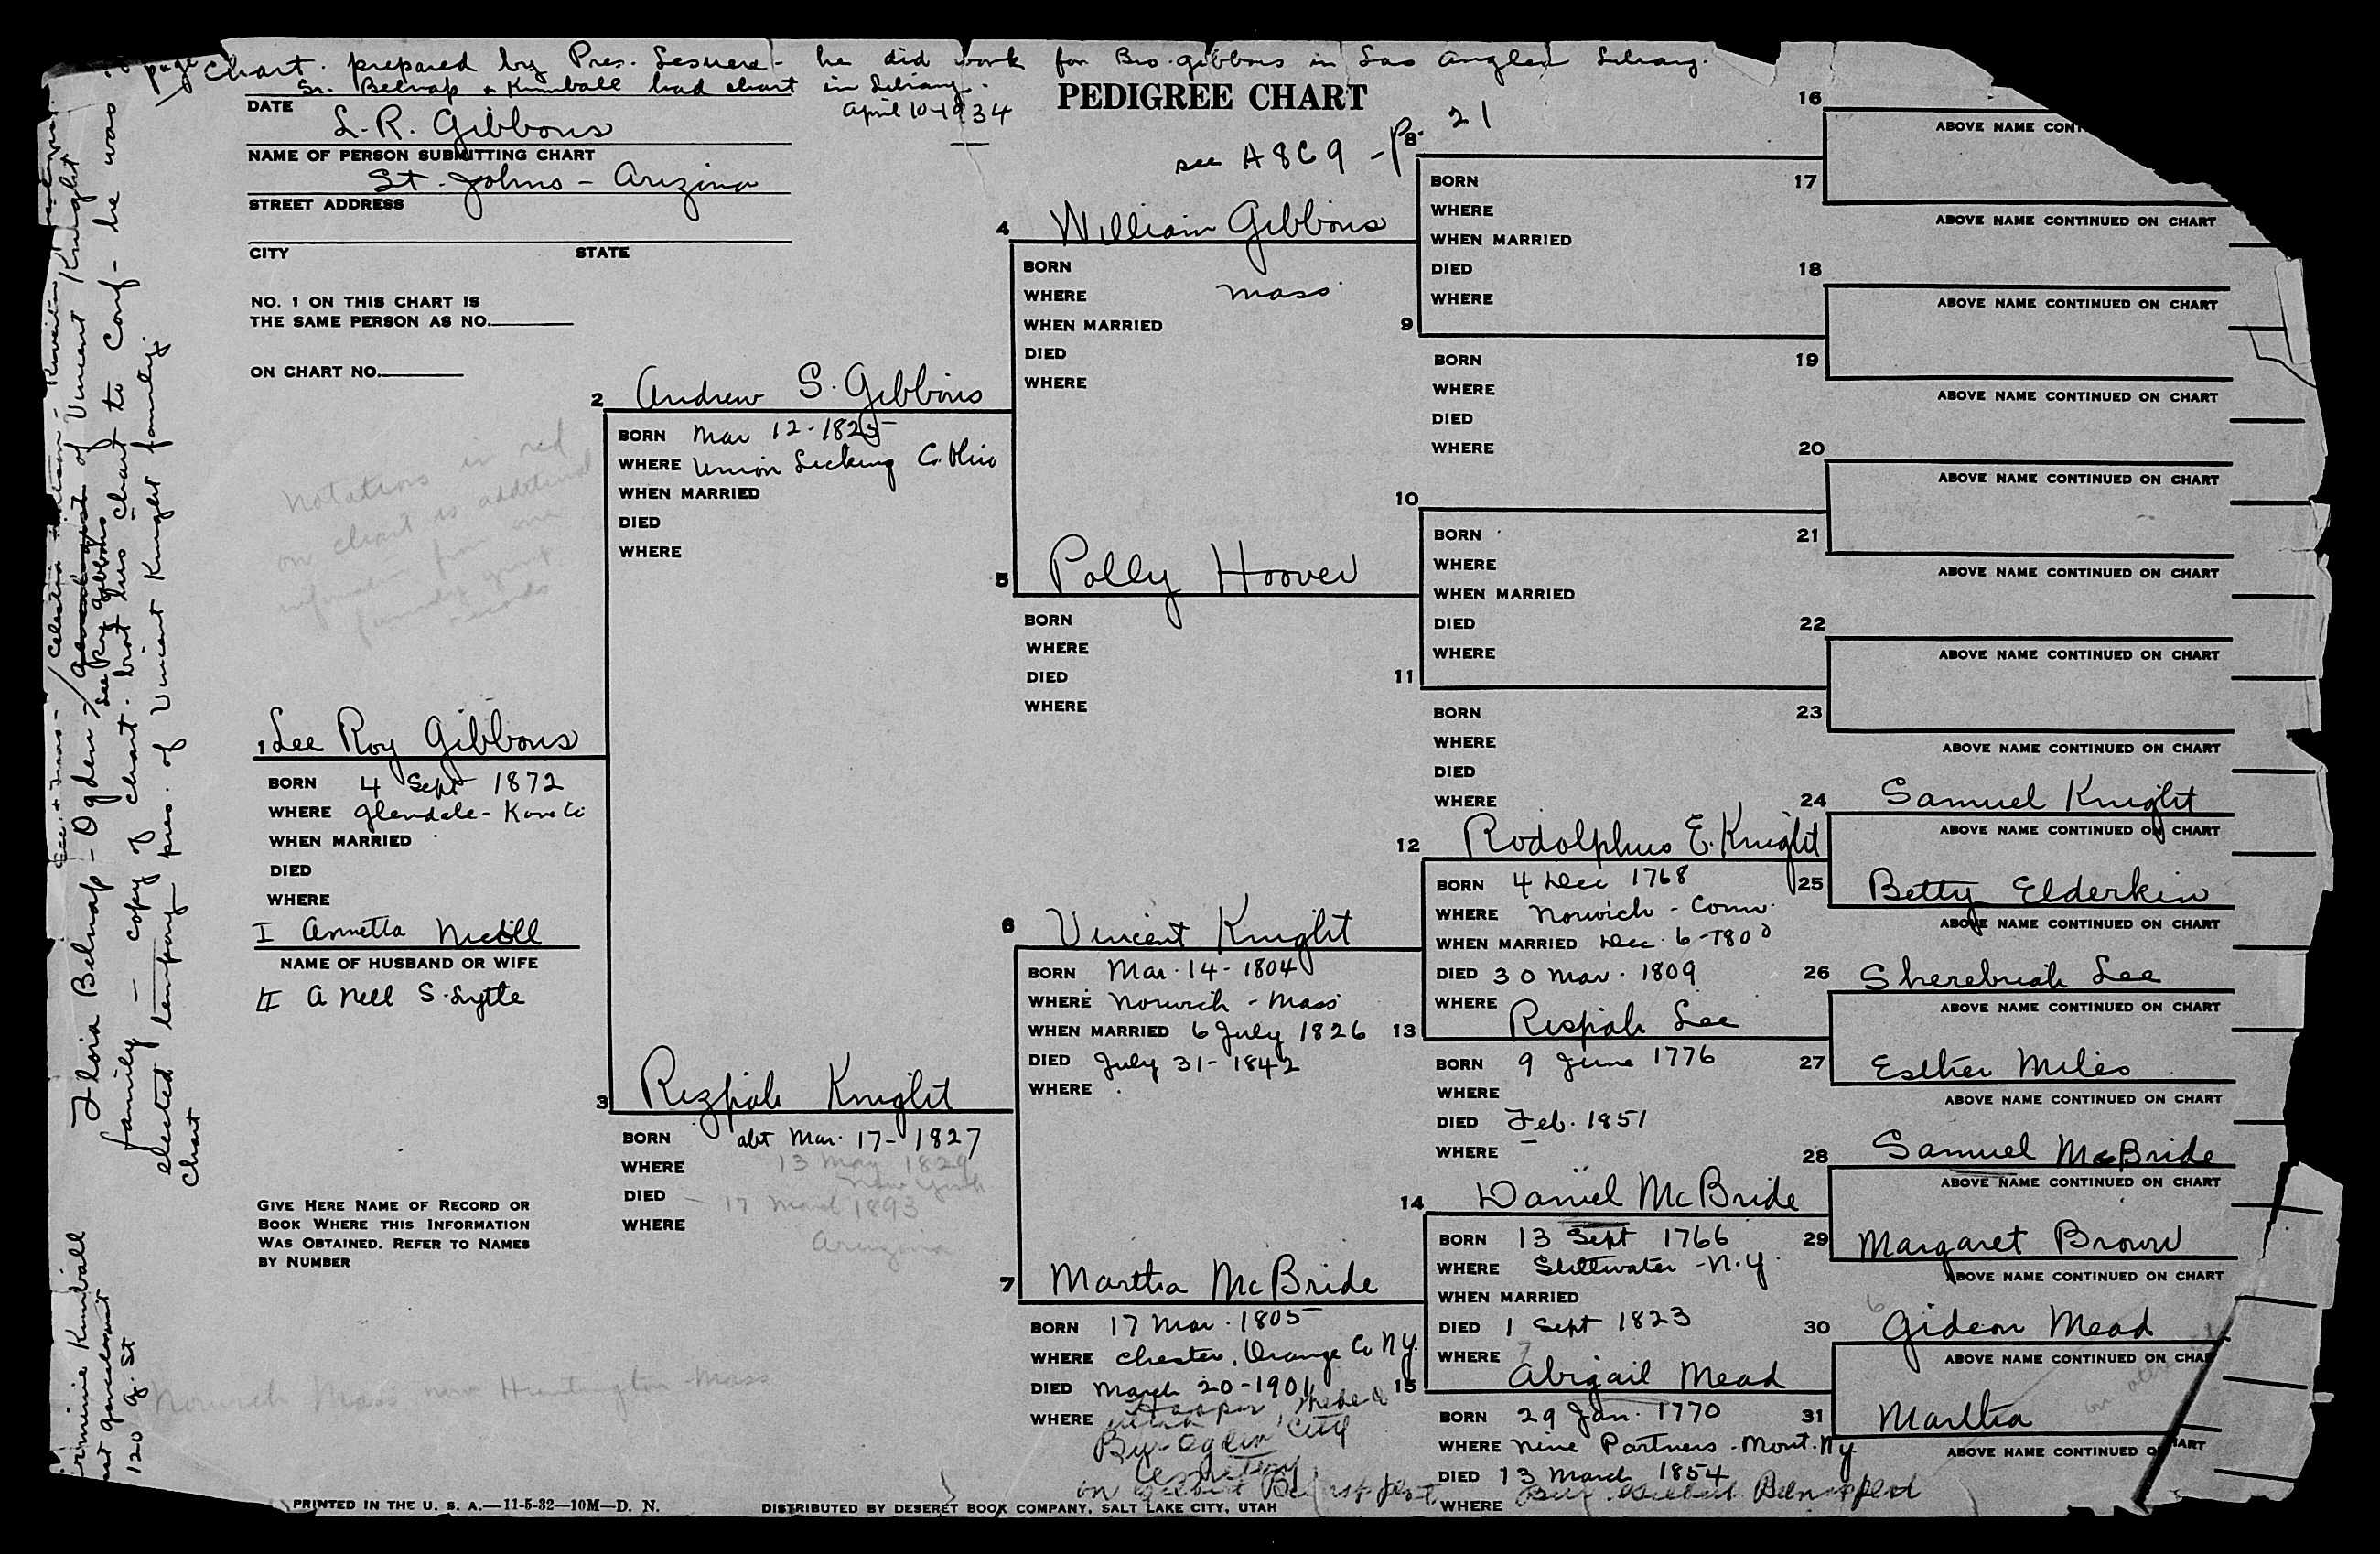 page chart. prepared by Pres. Lesuera - he did work for Bro. Gibbons in Los Angles Library.
Sr. Belnap & Kimball had chart in Library.
April 10-1934
PEDIGREE CHART
see A8C9 - P. 21
DATE
L. R. Gibbons
NAME OF PERSON SUBMITTING CHART
St. Johns - Arizona
STREET ADDRESS
CITY STATE
NO. 1 ON THIS CHART IS
THE SAME PERSON AS NO.
ON CHART NO.
Notations in red
on chart is additional
information from
family group
records
1 Lee Roy Gibbons
BORN 4 Sept 1872
WHERE Glendale - Kane Co
WHEN MARRIED
DIED
WHERE
I Annetta
NAME OF HUSBAND OR WIFE
II A Nell S. Lytle
GIVE HERE NAME OF RECORD OR
BOOK WHERE THIS INFORMATION
WAS OBTAINED. REFER TO NAMES
BY NUMBER
2 Andrew S. Gibbons
BORN Mar 12-1825
WHERE Union Licking Co. Ohio
WHEN MARRIED
DIED
WHERE
3 Rizpah Knight
BORN abt Mar. 17-1827
13 May 1829
WHERE New York
DIED - 17 March 1893
WHERE Arizona
4 William Gibbons
BORN
WHERE Mass
WHEN MARRIED
DIED
WHERE
5 Polly Hoover
BORN
WHERE
DIED
WHERE
6 Vincent Knight
BORN Mar. 14-1804
WHERE Norwich - Mass
WHEN MARRIED 6 July 1826
DIED July 31-1842
WHERE
7 Martha McBride
BORN 17 Mar. 1805
WHERE Chester, Orange Co N.Y.
DIED March 20-1901
WHERE Hooper, Weber Co
Utah
Bur-Ogden City
Cemetery
on Gilbert Belnap plot
8
BORN
WHERE
WHEN MARRIED
DIED
WHERE
9
BORN
WHERE
DIED
WHERE
10
BORN
WHERE
WHEN MARRIED
DIED
WHERE
11
BORN
WHERE
DIED
WHERE
12 Rodolphus E. Knight
BORN 4 Dec 1768
WHERE Norwich - Conn.
WHEN MARRIED Dec. 6-1800
DIED 30 Mar. 1809
WHERE
13 Rispiah Lee
BORN 9 June 1776
WHERE
DIED Feb. 1851
WHERE
14 Daniel McBride
BORN 13 Sept 1766
WHERE Stillwater - N.Y.
WHEN MARRIED
DIED 1 Sept 1823
WHERE
15 Abigail Mead
BORN 29 Jan. 1770
WHERE Nine Partners - Mont. Ny
DIED 13 March 1854
WHERE Bur Gilbert Belnap plot
16
ABOVE NAME CONT
17
ABOVE NAME CONTINUED ON CHART
18
ABOVE NAME CONTINUED ON CHART
19
ABOVE NAME CONTINUED ON CHART
20
ABOVE NAME CONTINUED ON CHART
21
ABOVE NAME CONTINUED ON CHART
22
ABOVE NAME CONTINUED ON CHART
23
ABOVE NAME CONTINUED ON CHART
24 Samuel Knight
ABOVE NAME CONTINUED ON CHART
25 Betty Elderkin
ABOVE NAME CONTINUED ON CHART
26 Sherebriah Lee
ABOVE NAME CONTINUED ON CHART
27 Esther Miles
ABOVE NAME CONTINUED ON CHART
28 Samuel McBride
ABOVE NAME CONTINUED ON CHART
29 Margaret Brown
ABOVE NAME CONTINUED ON CHART
30 Gideon Mead
ABOVE NAME CONTINUED ON CHAR
31 Martha
ABOVE NAME CONTINUED ON CHART
Flora Belnap - Ogden / Genealogist of Vincent Knight
see Roy Gibbons
family - copy of chart. brot this chart to Conf - he was
elected temporary pres. of Vincent Knight family.
chart
Kimball
120 G. St
Norwich Mass now Huntington - Mass
PRINTED IN THE U. S. A.—11-5-32—10M—D. N.
DISTRIBUTED BY DESERET BOOK COMPANY, SALT LAKE CITY, UTAH